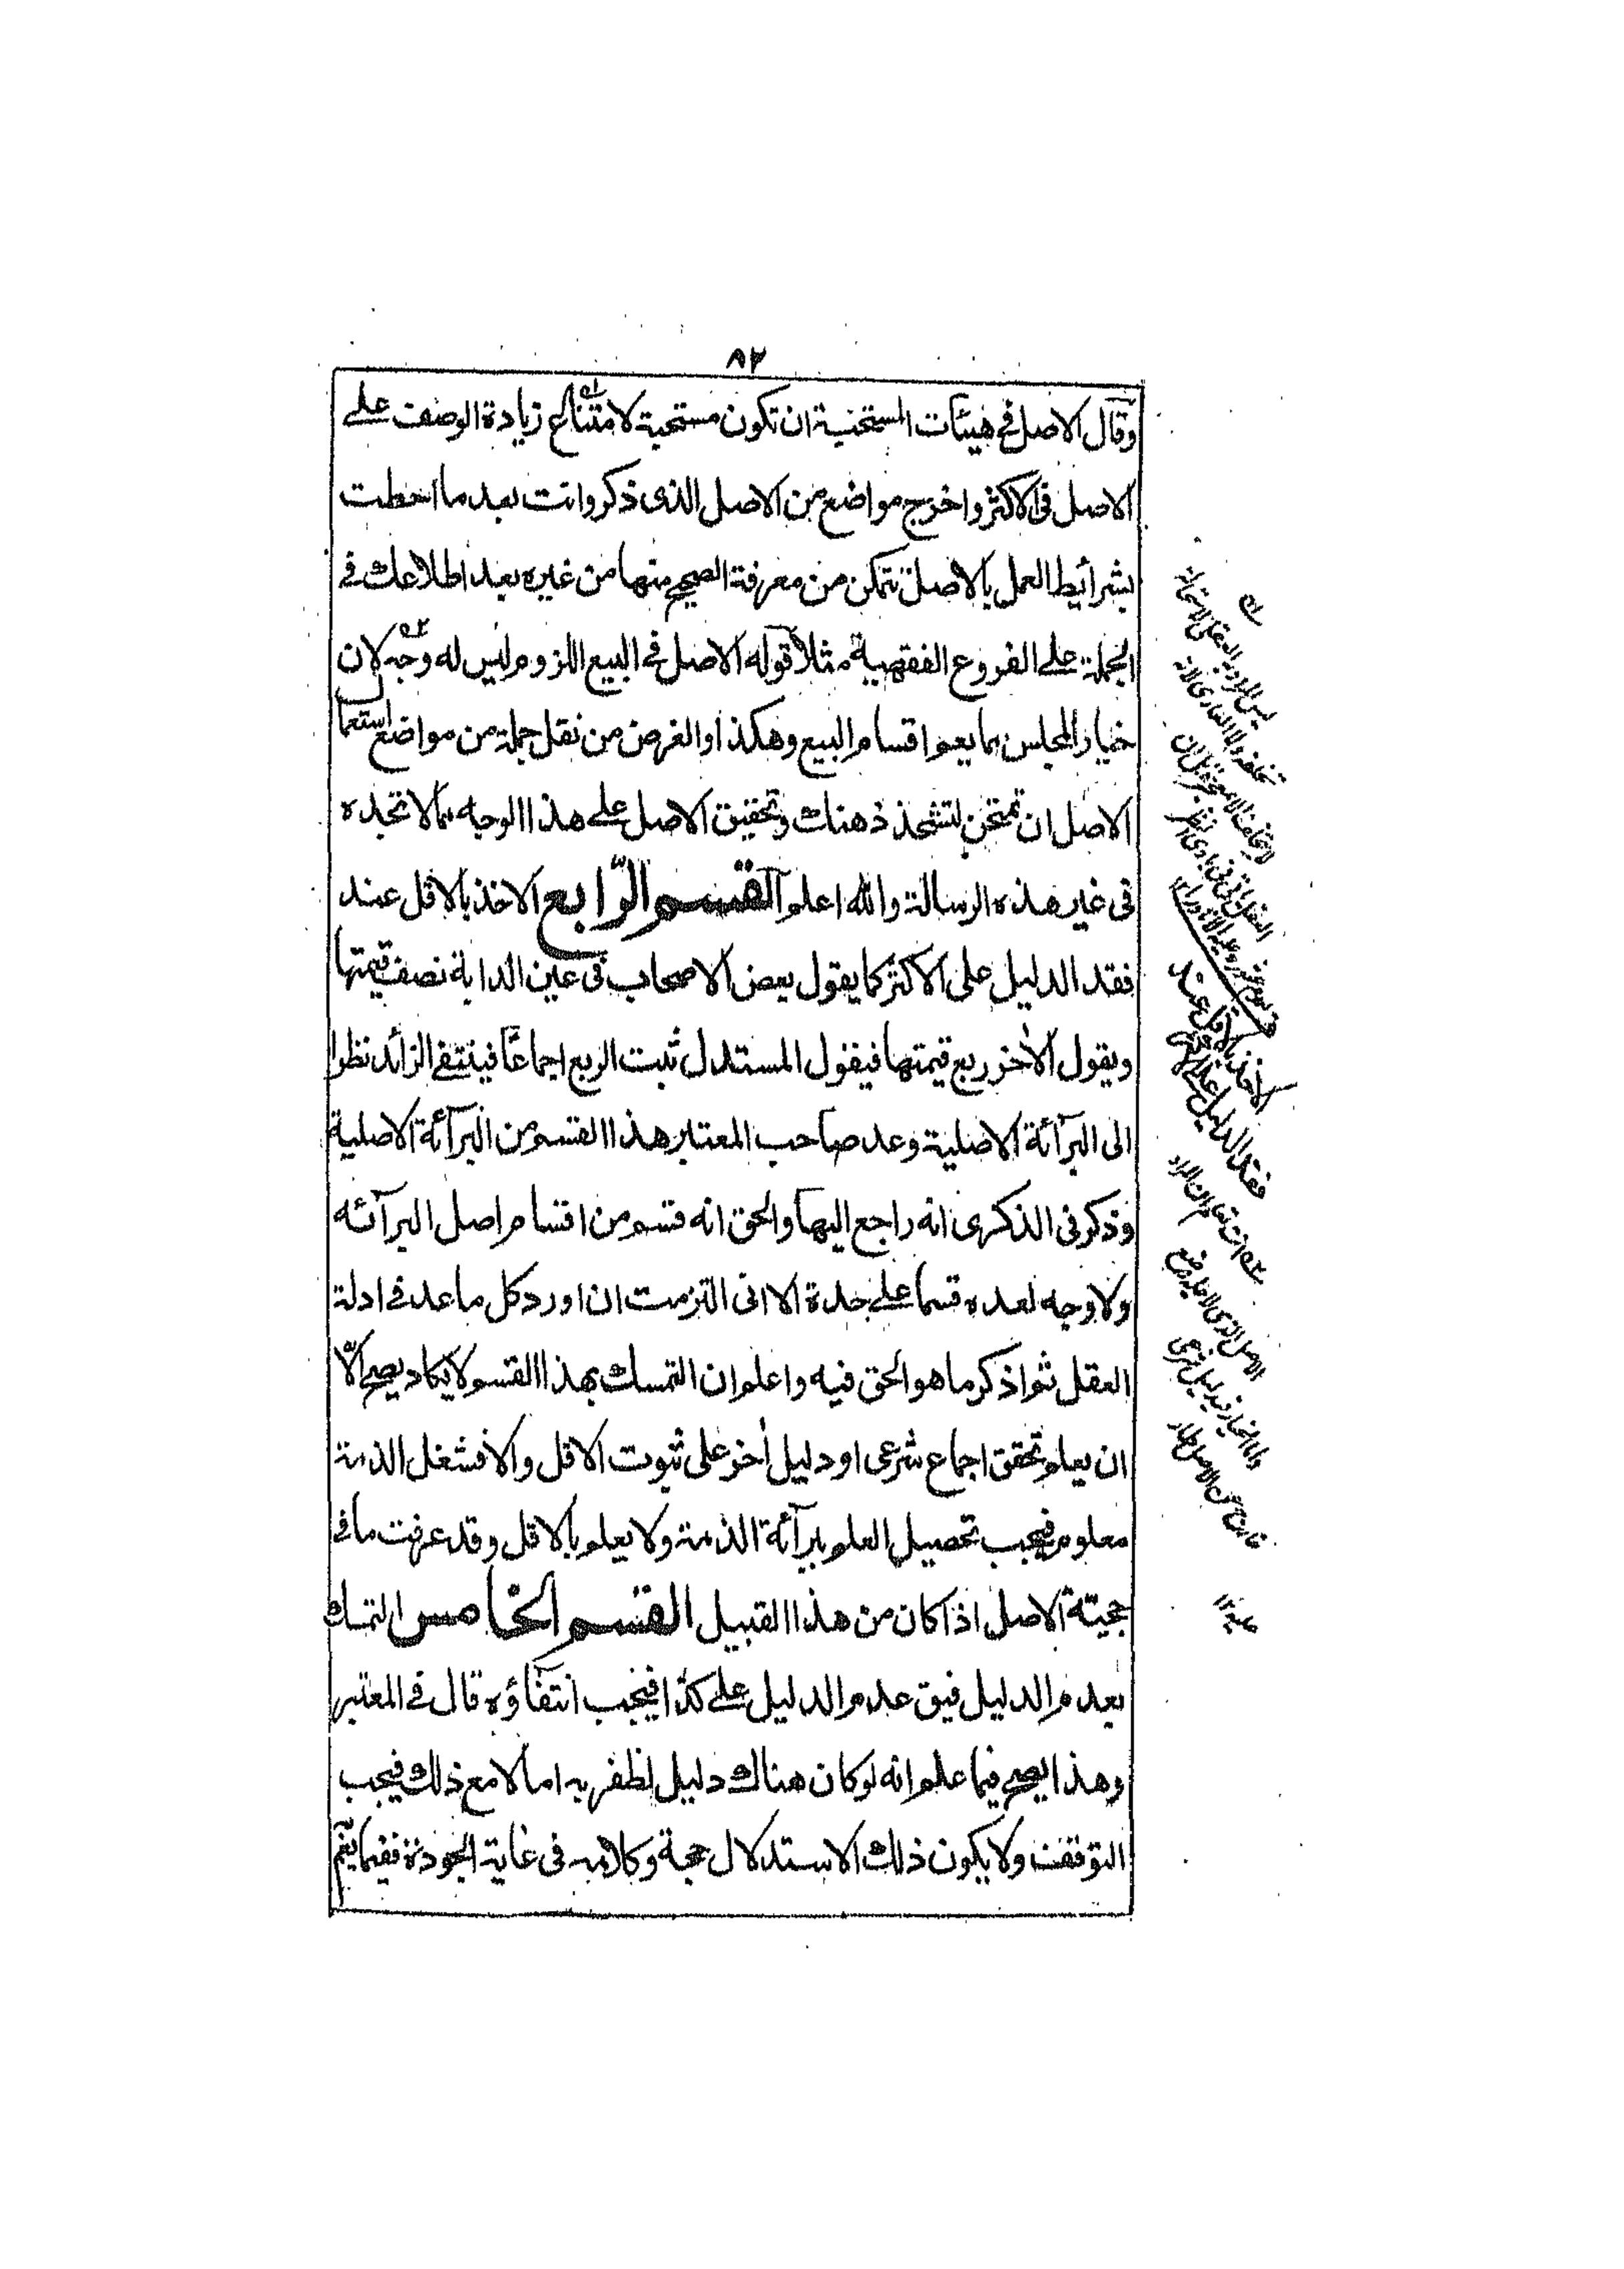 ٨٢
وقال الاصل فى هيئات المستحبة ان تكون مستحبة لامتناع زيادة الوصف على
الاصل فى الاكثر واخرج مواضع من الاصل الذى ذكر وانت بعد ما احطت
بشرائط العمل بالاصل تتمكن من معرفة الصحيح منها من غيره بعد اطلاعك فى
الجملة على الفروع الفقهية مثلا قوله الاصل فى البيع اللزوم ليس له وجه لان
خيار المجلس مما يعم اقسام البيع وهكذا والغرض من نقل جملة من مواضع استعمال
الاصل ان تمتحن لتشحذ ذهنك وتحقيق الاصل على هذا الوجه مما لا تجده
فى غير هذه الرسالة والله اعلم القسم الرّابع الاخذ بالاقل عند
فقد الدليل على الاكثر كما يقول بعض الاصحاب فى عين الدابة نصف قيمتها
ويقول الاٰخر ربع قيمتها فيقول المستدل ثبت الربع اجماعًا فينتفى الزائد نظرا
الى البرآئة الاصلية وعد صاحب المعتبر هذا القسم من البرآئة الاصلية
وذكر فى الذكرى انه راجع اليها والحق انه قسم من اقسام اصل البرآئه
ولا وجه لعده قسما على حدة الا انى التزمت ان اورد كل ما عد فى ادلة
العقل ثم اذكر ما هو الحق فيه واعلم ان التمسك بهذا القسم لا يكاد يصح الّا
ان يعلم تحقق اجماع شرعى او دليل اٰخر على ثبوت الاقل والا فشغل الذمة
معلوم فيجب تحصيل العلم ببرآئة الذمة ولا يعلم بالاقل وقد عرفت ما فى
حجيته الاصل اذا كان من هذا القبيل القسم الخامس التمسك
بعدم الدليل فيق عدم الدليل على كذا فيجب انتفاؤه قال فى المعتبر
وهذا يصح فيما علم انه لو كان هناك دليل لظفر به اما لا مع ذلك فيجب
التوقف ولا يكون ذلك الاستدلال حجة وكلامه فى غاية الجودة ففيما يعم
الاخذ بالاقل عند
فقد الدليل على